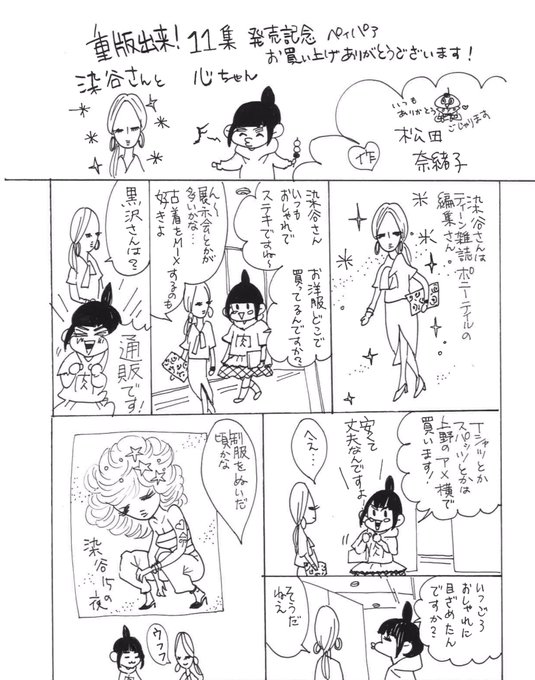 重版出来!11集 発売記念 ペイパ3
お買い上げありがとうございます!
染谷さんと 心ちゃん
いつも
ありがとう
ごじゃります
松田
奈緒子
作
染谷さんは
ティーン雑誌 ポニーテイルの
編集さん
染谷さん
いつも
おしゃれで
ステキですね〜
お洋服どこで
買ってるんですか?
ん〜
展示会とかが
多いかな…
古着をMIXするのも
好きよ
肉
黒沢さんは?
通販です!
Tシャツとか
スパッツとかは
上野のアメ横で
買います!
安くて
丈夫なんですよ
へえ…
いつごろ
おしゃれに
目ざめたん
ですか?
そうだ
ねえ
制服をぬいだ
頃かな
染谷15の夜
ウフフ